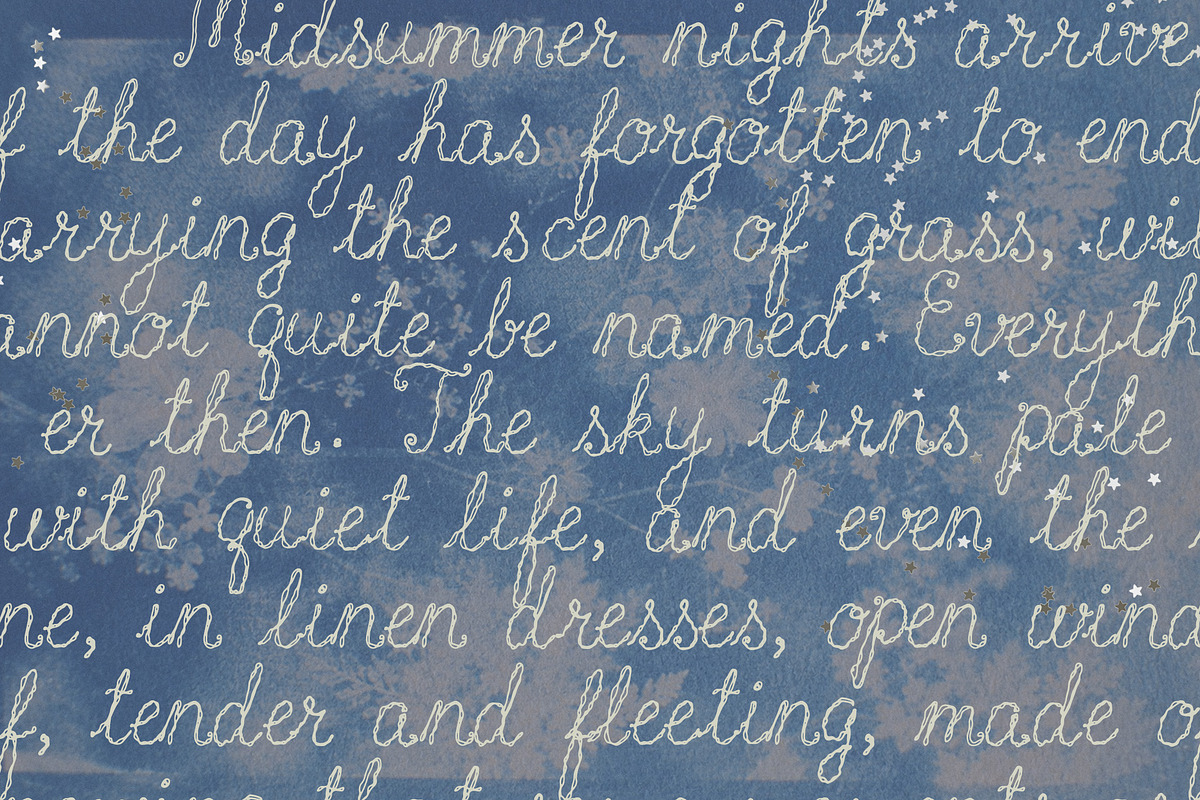 Midsummer nights arrive
f the day has forgotten to end
arrying the scent of grass, wi
annot quite be named. Everyth
er then. The sky turns pale
with quiet life, and even the
ne, in linen dresses, open wind
f, tender and fleeting, made o